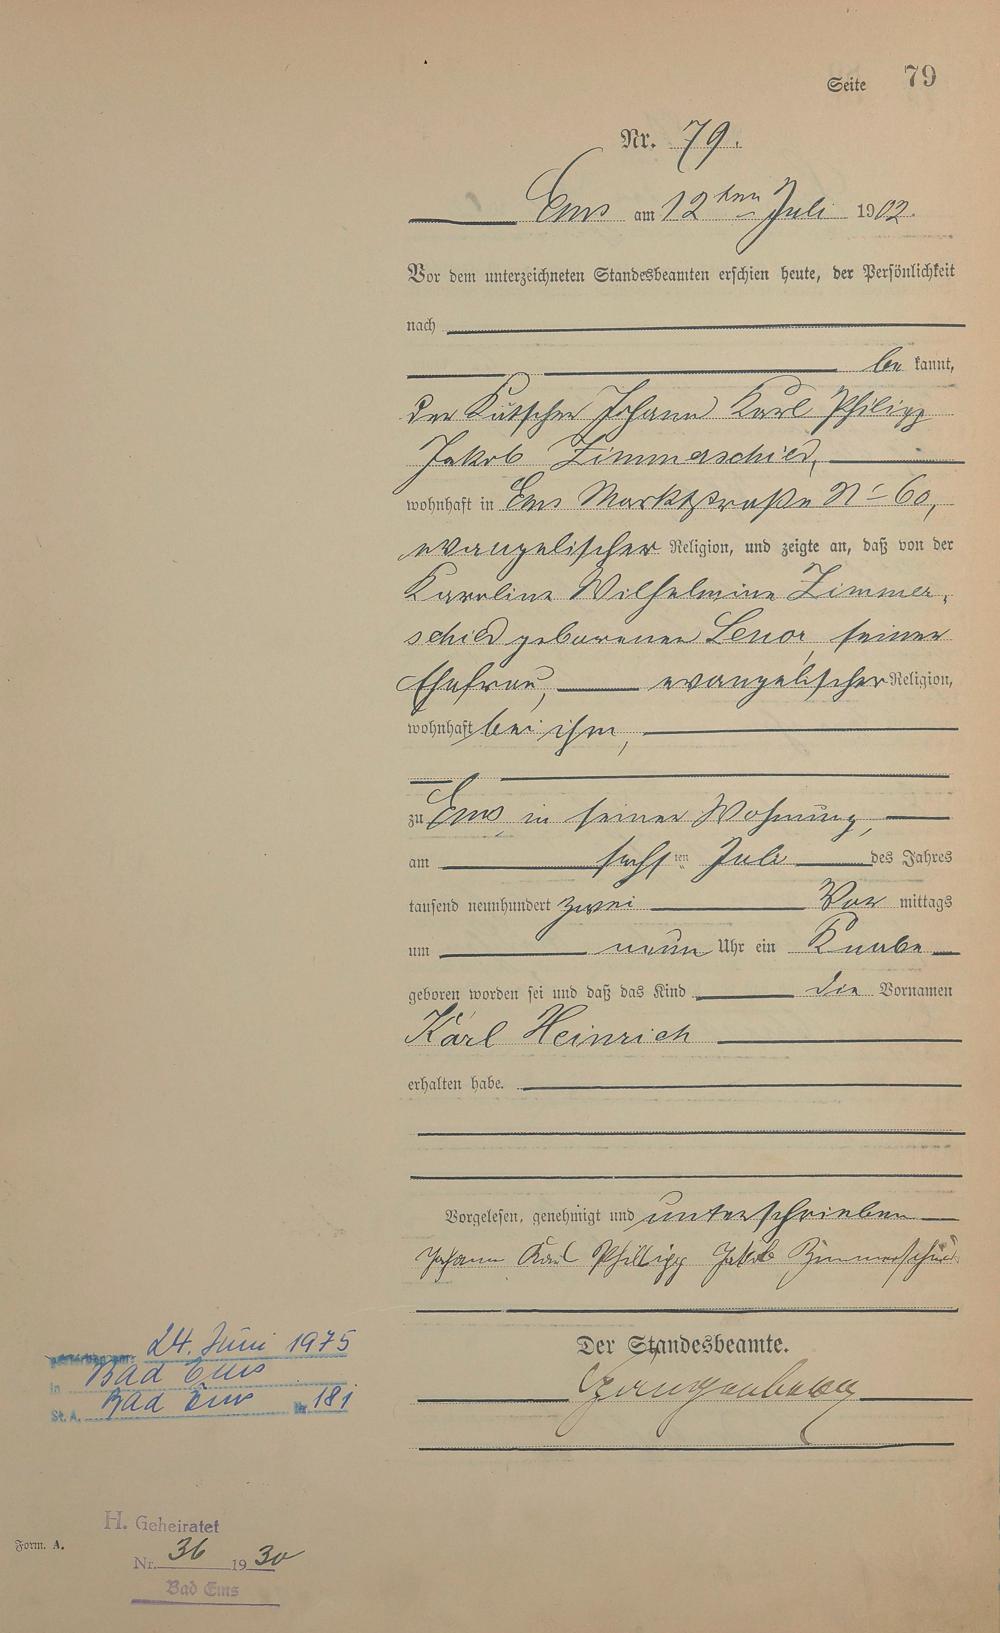 Seite 79
Nr. 79.
Ems am 12ten Juli 1902.
Vor dem unterzeichneten Standesbeamten erschien heute, der Persönlichkeit
nach
be kannt,
der Kutscher Johann Karl Philipp
Jakob Zimmerschied,
wohnhaft in Ems Marktstraße No 60,
evangelischer Religion, und zeigte an, daß von der
Karoline Wilhelmine Zimmer-
schied geborenen Lenor, seiner
Ehefrau, evangelischer Religion,
wohnhaft bei ihm,
zu Ems, in seiner Wohnung,
am sechsten Juli des Jahres
tausend neunhundert zwei Vor mittags
um neun Uhr ein Knabe
geboren worden sei und daß das Kind die Vornamen
Karl Heinrich
erhalten habe.
Vorgelesen, genehmigt und unterschrieben
Johann Karl Phillipp Jakob Zimmerschied
Der Standesbeamte.
gestorben am: 24. Juni 1975
in Bad Ems
St. A. Bad Ems Nr. 181
H. Geheiratet
Form. A.
Nr. 36 1930
Bad Ems